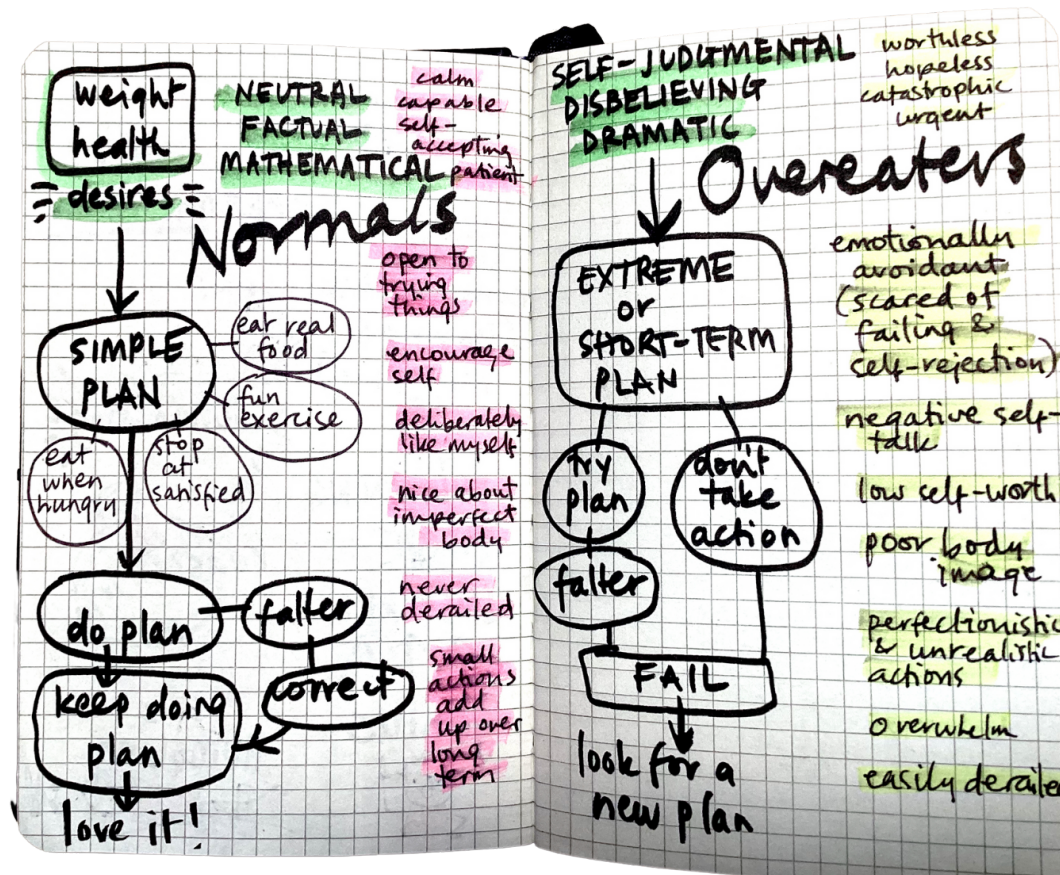 weight
health
desires
NEUTRAL
FACTUAL
MATHEMATICAL
calm
capable
self-
accepting
patient
Normals
SIMPLE
PLAN
eat real
food
fun
exercise
eat
when
hungry
stop
at
satisfied
do plan
falter
correct
keep doing
plan
love it!
open to
trying
things
encourage
self
deliberately
like myself
nice about
imperfect
body
never
derailed
small
actions
add
up over
long
term
SELF-JUDGMENTAL
DISBELIEVING
DRAMATIC
worthless
hopeless
catastrophic
urgent
Overeaters
EXTREME
or
SHORT-TERM
PLAN
try
plan
falter
don't
take
action
FAIL
look for a
new plan
emotionally
avoidant
(scared of
failing &
self-rejection)
negative self-
talk
low self-worth
poor body
image
perfectionistic
& unrealistic
actions
overwhelm
easily derailed